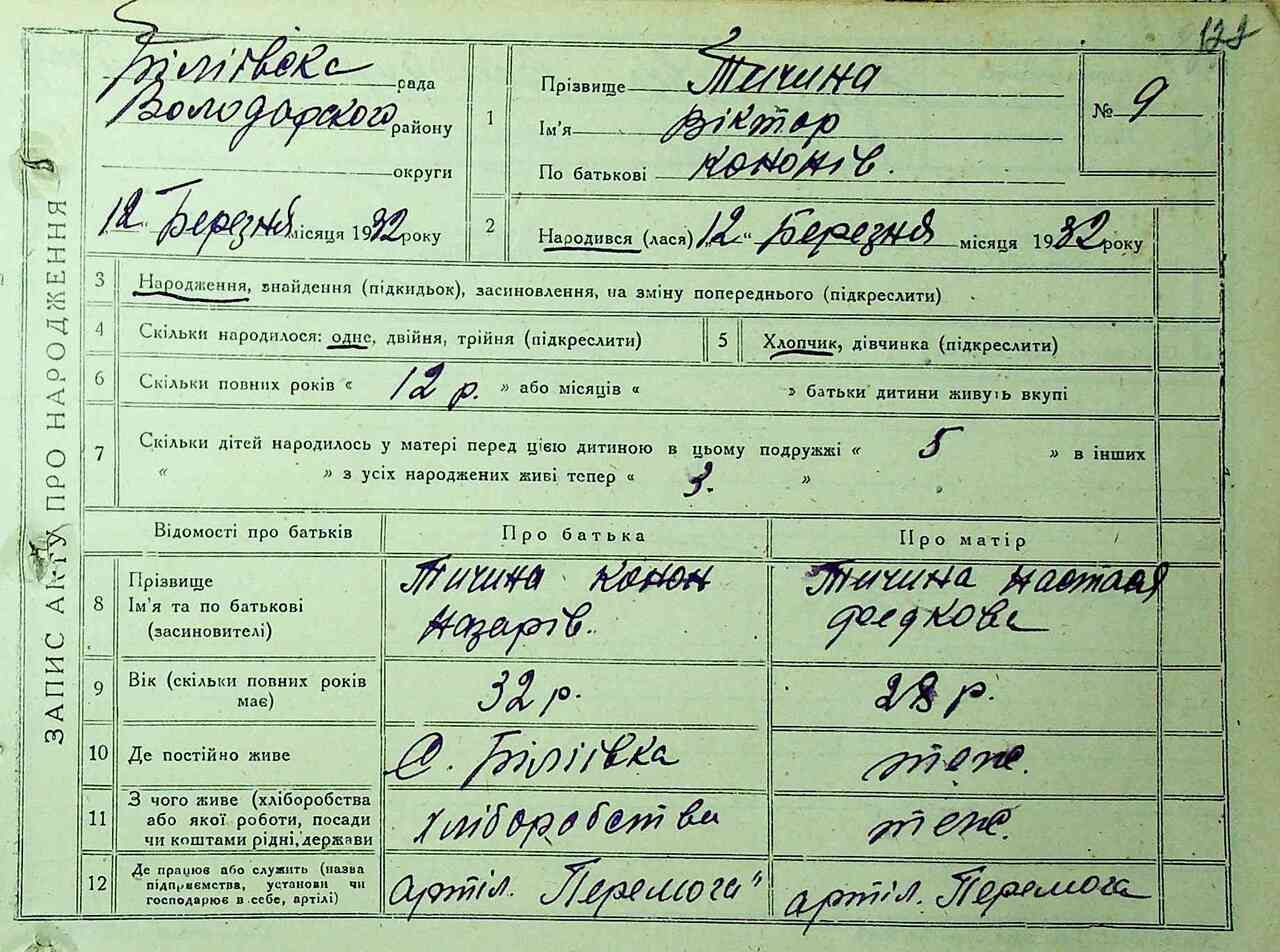 ЗАПИС АКТУ ПРО НАРОДЖЕННЯ
Біліївска рада
Володарского району
округи
12 " Березня місяця 1932 року
1
Прізвище Тичина
Ім'я Віктор
По батькові Кононів.
№ 9
2
Народився (лася) 12 " Березня місяця 1932 року
3 Народження, знайдення (підкидьок), засиновлення, на зміну попереднього (підкреслити)
4 Скільки народилося: одне, двійня, трійня (підкреслити)
5 Хлопчик, дівчинка (підкреслити)
6 Скільки повних років « 12 р. » або місяців « » батьки дитини живуть вкупі
7 Скільки дітей народилось у матері перед цією дитиною в цьому подружжі « 5 » в інших
« » з усіх народжених живі тепер « 3. »
Відомості про батьків Про батька Про матір
8 Прізвище
Ім'я та по батькові
(засиновителі)
Тичина Конон
Назарів.
Тичина Настася
Федкова
9 Вік (скільки повних років
має)
32 р.
28 р.
10 Де постійно живе
С. Біліївка
теж.
11 З чого живе (хліборобства
або якої роботи, посади
чи коштами рідні, держави
хліборобства
теж.
12 Де працює або служить (назва
підприємства, установи чи
господарює в себе, артілі)
артіл. Перемога"
артіл. Перемога